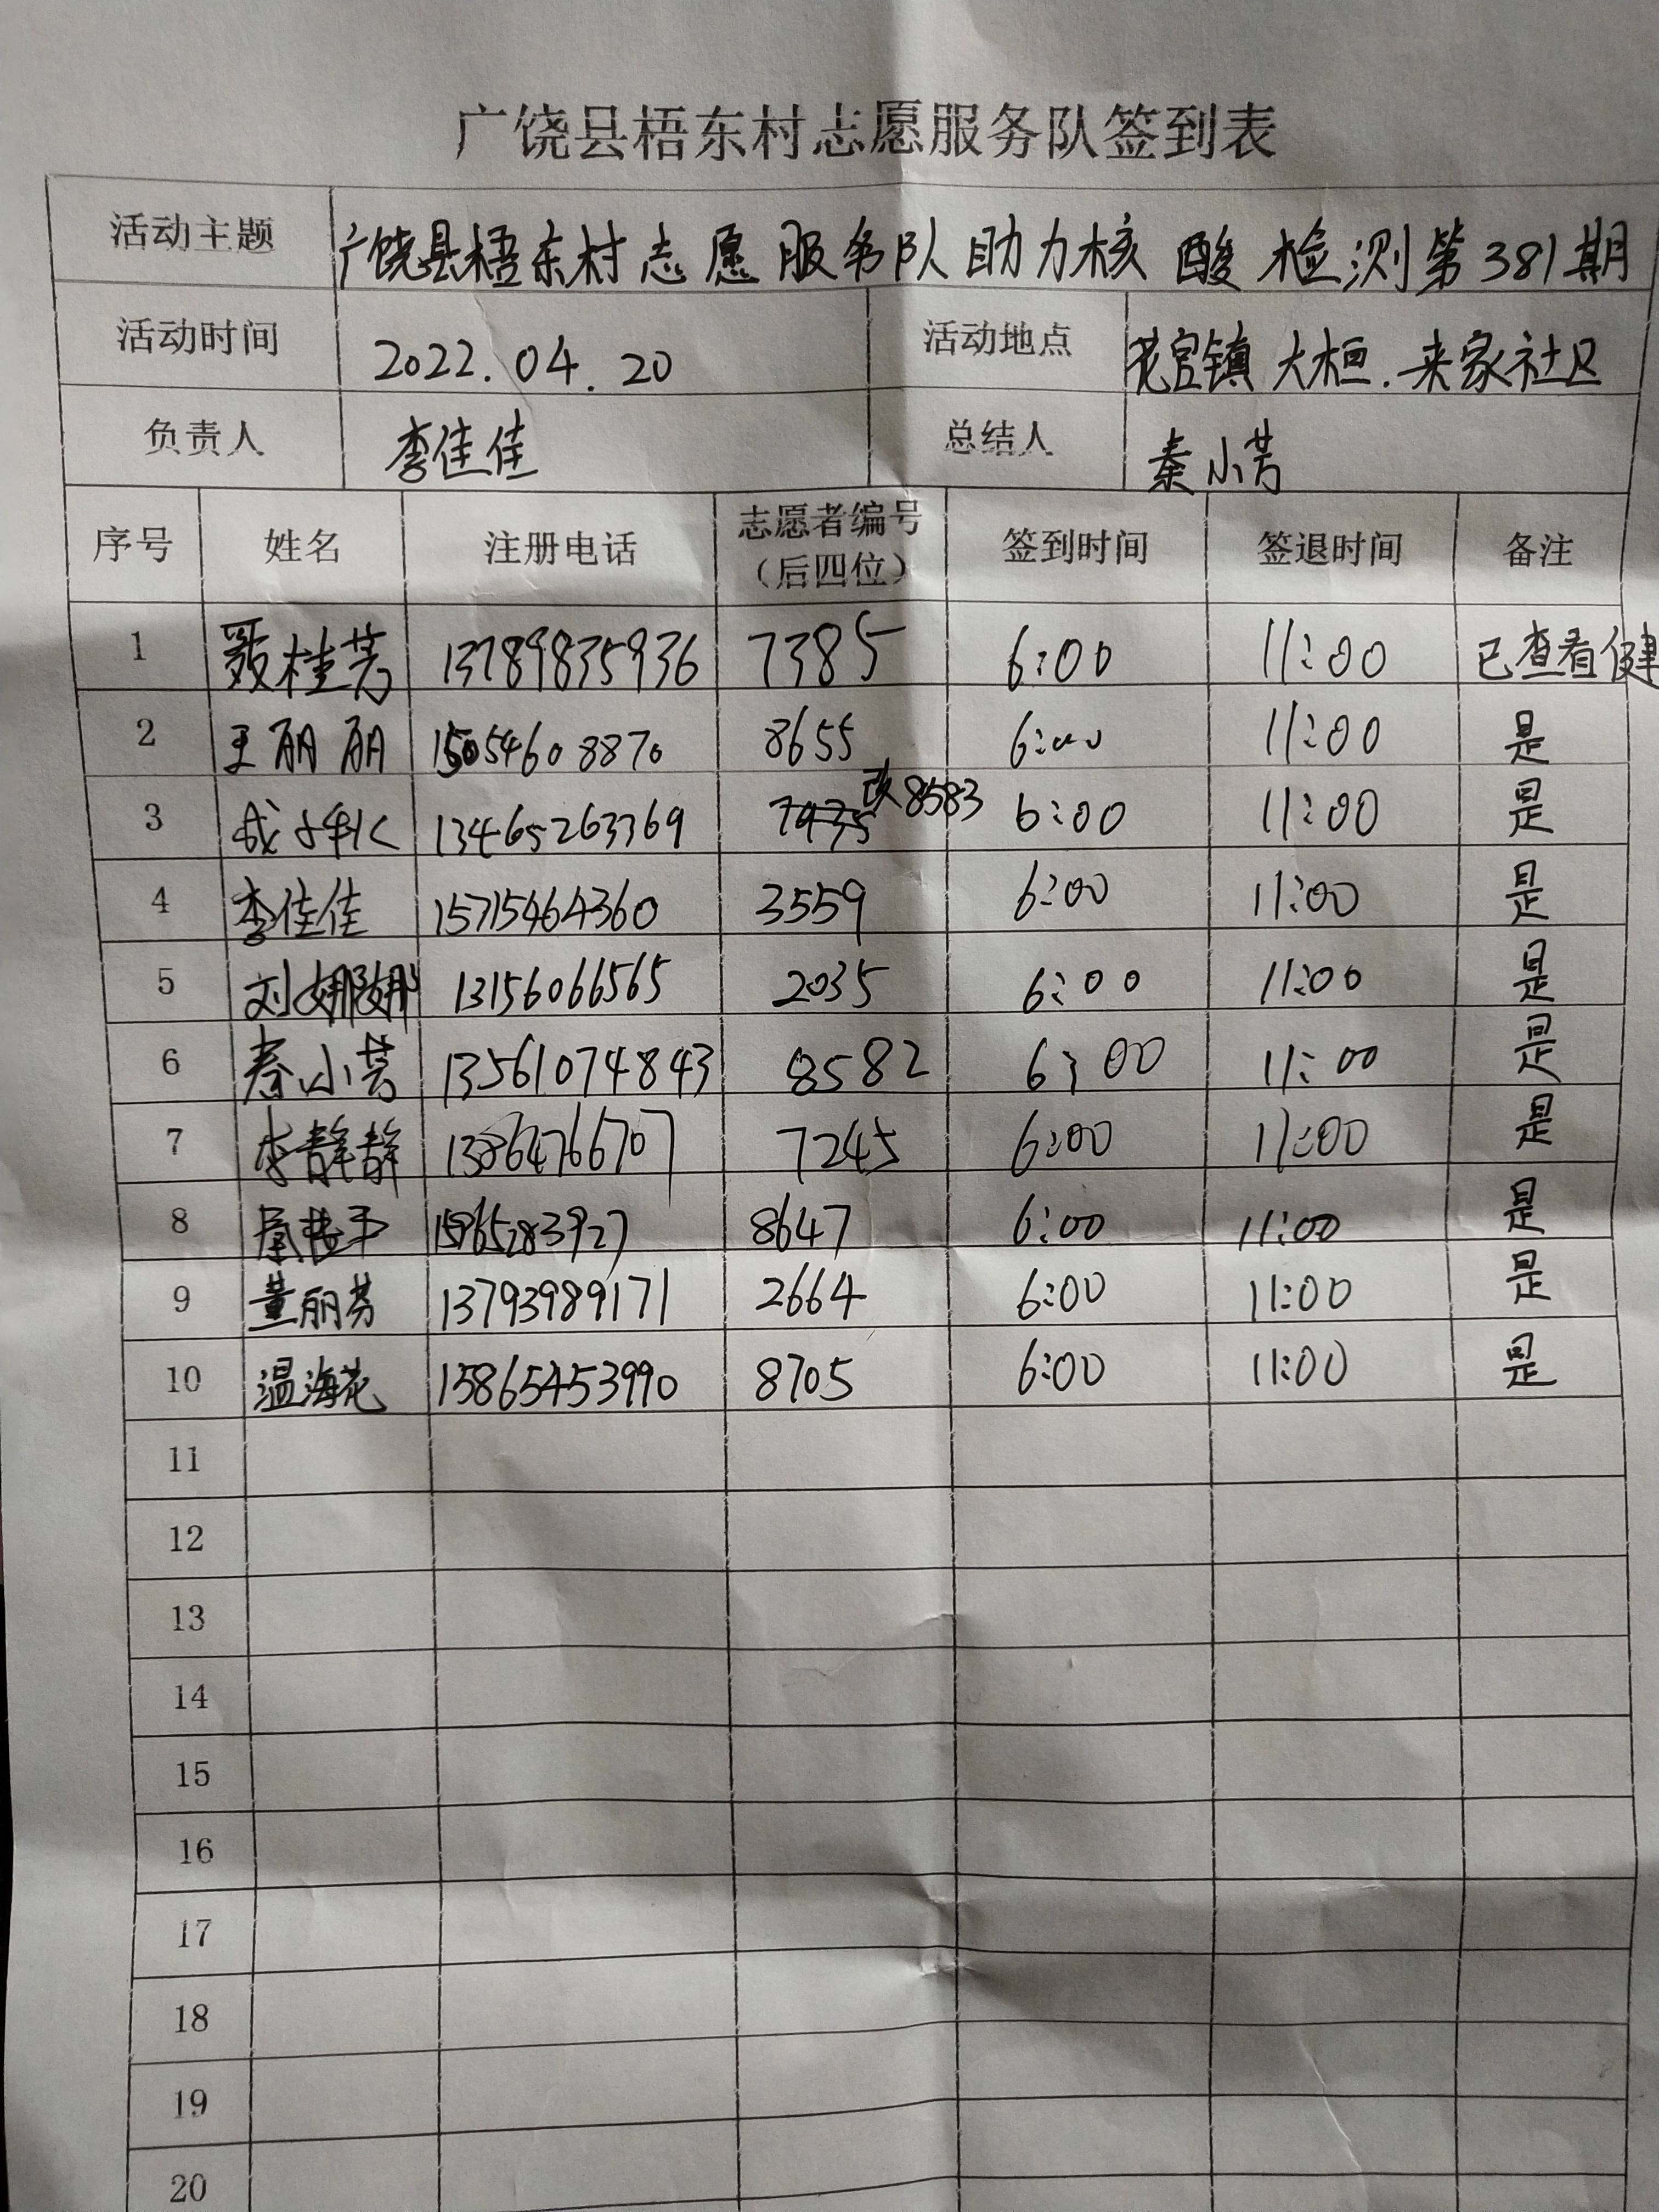 广饶县梧东村志愿服务队签到表
活动主题 广饶县梧东村志愿服务队助力核酸检测第381期
活动时间 2022.04.20 活动地点 花官镇大桓.来家社区
负责人 李佳佳 总结人 秦小芳
序号 姓名 注册电话 志愿者编号（后四位） 签到时间 签退时间 备注
1 聂桂芳 13789835936 7385 6:00 11:00 已查看健
2 王丽丽 15054608870 8655 6:00 11:00 是
3 13465263369 7935 改8583 6:00 11:00 是
4 李佳佳 15715464360 3559 6:00 11:00 是
5 刘娜娜 13156066565 2035 6:00 11:00 是
6 秦小芳 13561074843 8582 6:00 11:00 是
7 李静静 13864766707 7245 6:00 11:00 是
8 8647 6:00 11:00 是
9 董丽芬 13793989171 2664 6:00 11:00 是
10 温海花 15865453990 8705 6:00 11:00 是
11
12
13
14
15
16
17
18
19
20